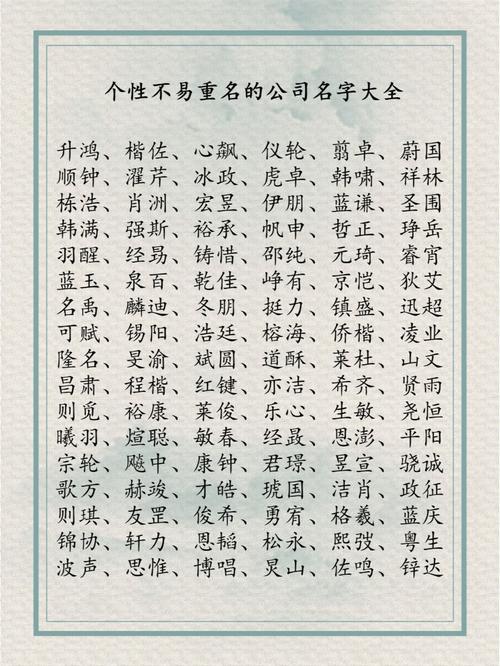 个性不易重名的公司名字大全
升鸿、楷佐、心飙、仪轮、翦卓、蔚国
顺钟、濯芹、冰政、虎卓、韩啸、祥林
栋浩、肖洲、宏昱、伊朋、蓝谦、圣围
韩满、强斯、裕承、帆申、哲正、琤岳
羽醒、经昜、铸惜、邵纯、元琦、睿宵
蓝玉、泉百、乾佳、峥有、京恺、狄艾
名禹、麟迪、冬朋、挺力、镇盛、迅超
可赋、锡阳、浩廷、榕海、侨楷、凌业
隆名、旻渝、斌圆、道酥、莱杜、山文
昌肃、程楷、红键、亦洁、希齐、贤雨
则觅、裕康、莱俊、乐心、生敏、尧恒
曦羽、煊聪、敏春、经晸、恩澎、平阳
宗轮、飚中、康钟、君璟、昱宣、骁诚
歌方、赫竣、才皓、琥国、洁肖、政征
则琪、友罡、俊希、勇宥、格羲、蓝庆
锦协、轩力、恩韬、松永、熙弢、粤生
波声、思惟、博唱、炅山、佐鸣、锌达